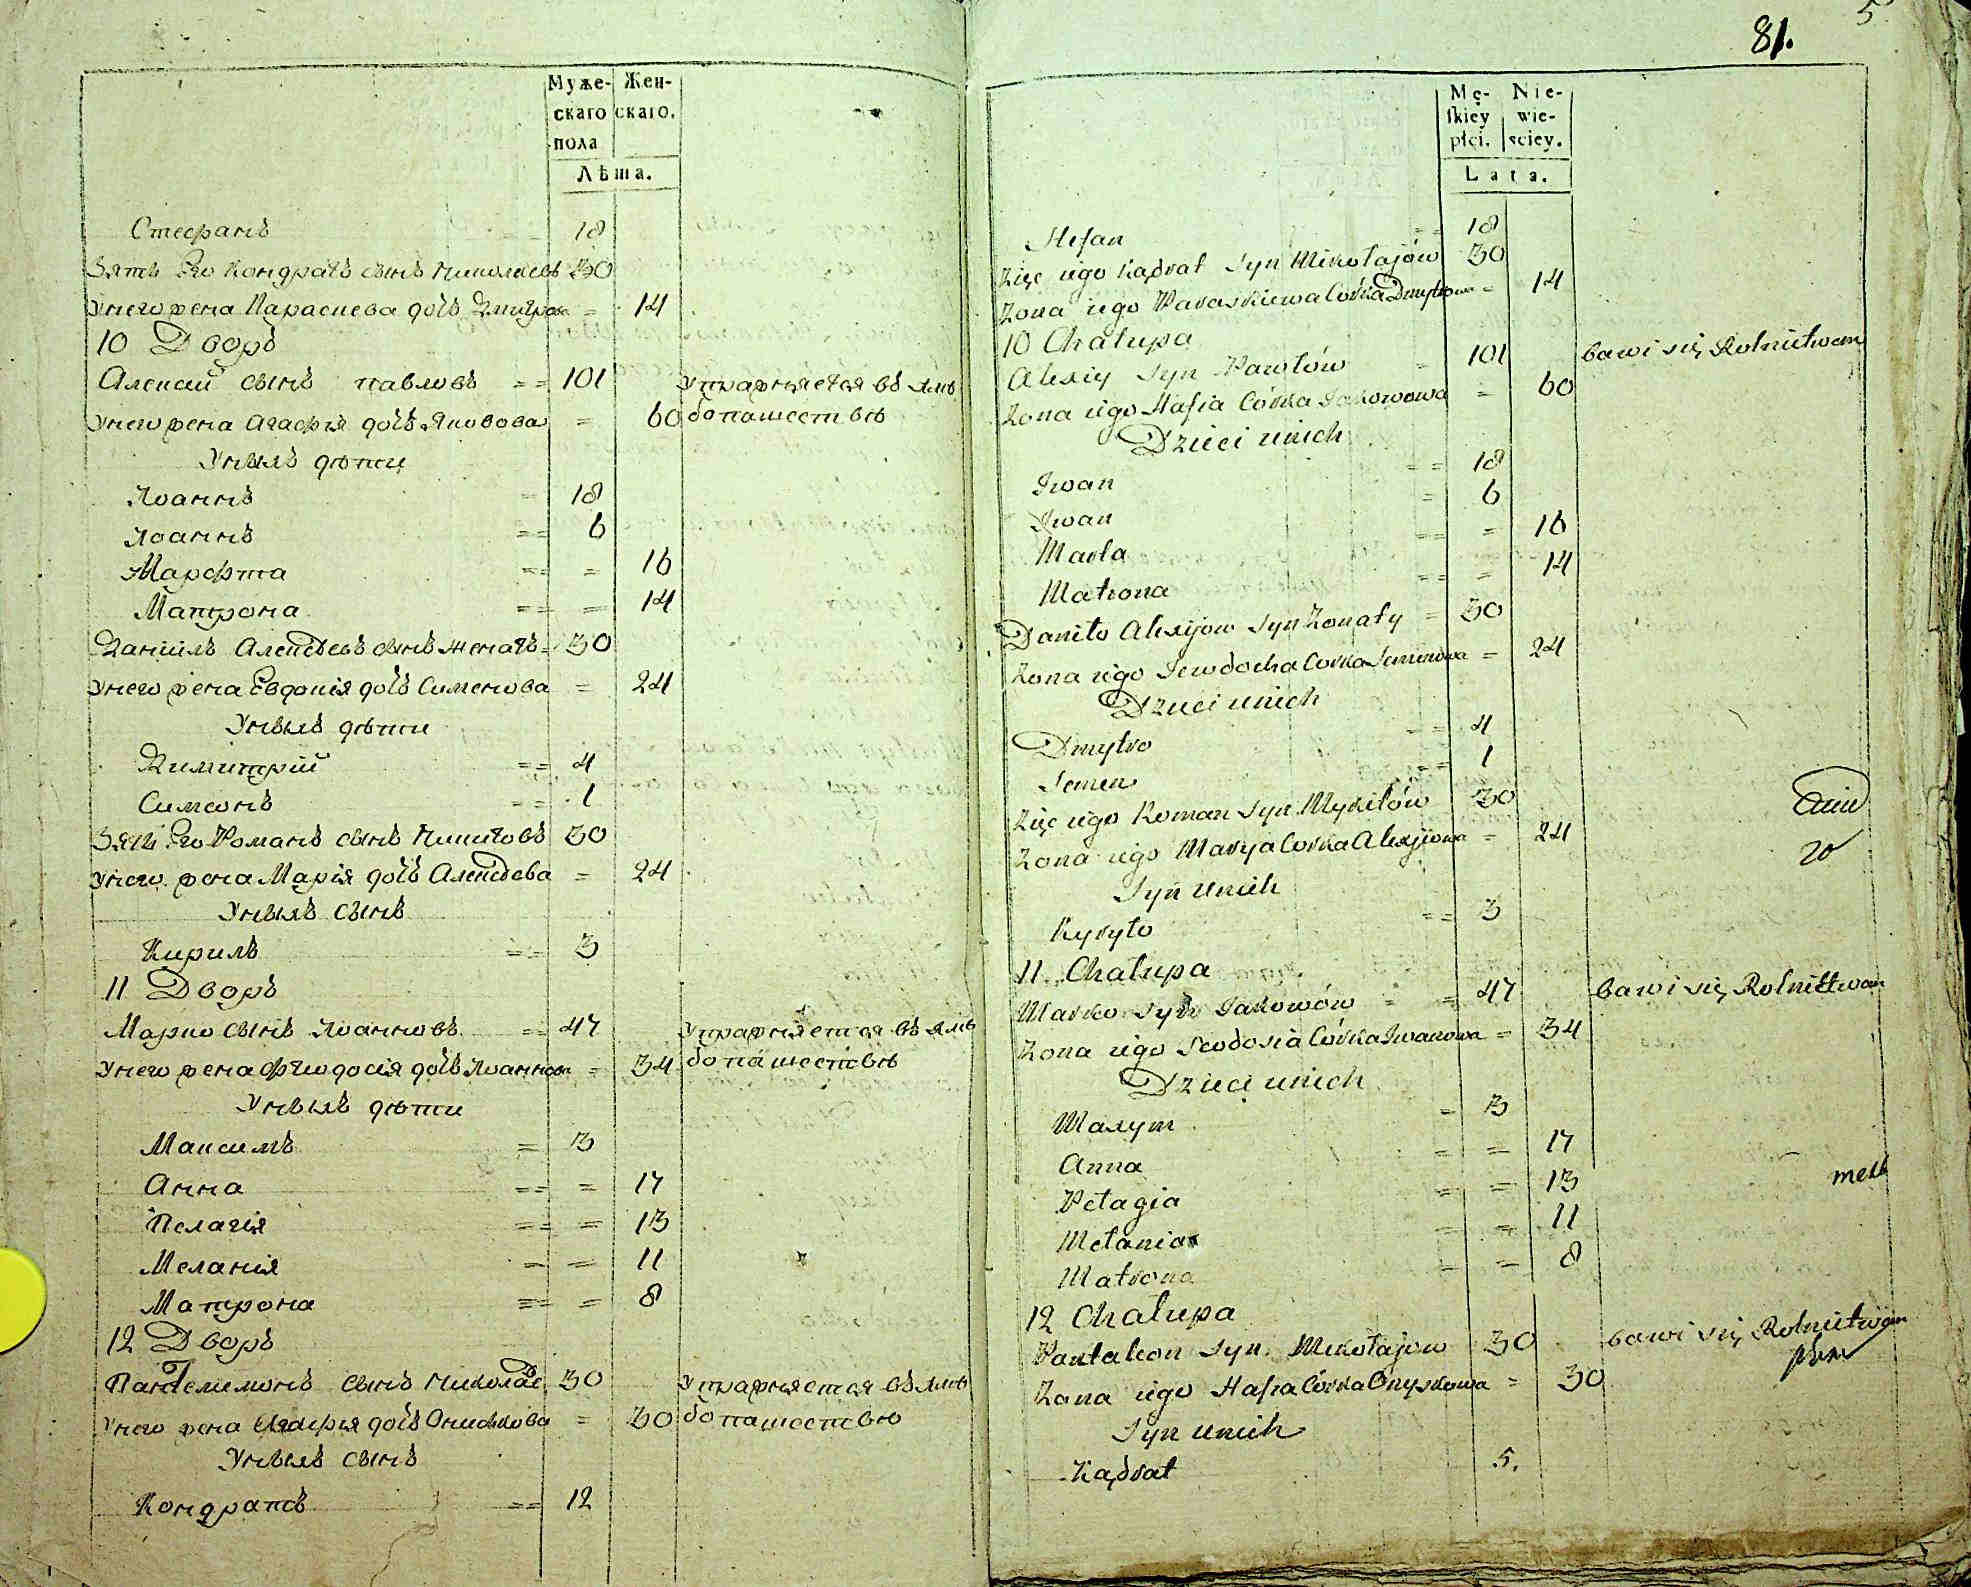 Муже-
скаго
пола
Жен-
скаго.
Лѣта.
Стефанъ == 18
Зять Его Кондратъ сынъ Николаевъ 30
Унего жена Параскева дочь Дмитрова = 14
10 Дворъ
Алексѣй сынъ павловъ == 101 Упражняется вѣ хлѣ
Унего жена Агафия дочь Яковова = 60 бопашествѣ
Унихъ дѣти
Иоаннъ = 18
Иоаннъ == 6
Марфта == = 16
Матрона == = 14
Данiилъ Алексѣевъ сынъ женатъ = 30
Унего жена Евдокiя дочь Сименова = 24
Унихъ дѣти
Димитрiй == 4
Симеонъ == 1
Зять Его Романъ сынъ Никитовъ 30
Унего жена Марiя дочь Алексѣева = 24
Унихъ сынъ
Кирилъ == 3
11 Дворъ
Марко сынъ Иоанновъ == 47 Упражняется вѣ хлѣ
Унего жена Феодосiя дочь Иоаннова = 34 бопашествѣ
Унихъ дѣти
Максимъ = 13
Анна == = 17
Пелагiя == = 13
Меланiя = = 11
Матрона == = 8
12 Дворъ
Пантелимонъ сынъ Николаев 30 Упражняется вѣ хлѣ
Унего жена Агафия дочь Онискова = 30 бопашествѣ
Унихъ сынъ
Кондратъ == 12
81.
5
Mę-
skiey
płci.
Nie-
wie-
sciey.
Lata.
Stefan == 18
Zięc iego Kądrat Syn Mikołajów 30
Zona iego Paraskiewa Córka Dmytrowa = 14
10 Chałupa
Alexiy Syn Pawłów = 101 bawi się Rolnictwem
Zona iego Hafia Córka Jakowowa = 60
Dzieci unich
Iwan == 18
Iwan = 6
Marta == = 16
Matrona == = 14
Daniło Alexijow Syn Zonaty = 30
Zona iego Jewdocha Corka Semenowa = 24
Dzieci unich
Dmytro == 4
Semen == 1
Zięc iego Roman Syn Mykitów 30
Zona iego Marya Corka Alexijowa = 24
Syn unich
Kyryło == 3
11 Chałupa
Marko Syn Jakowów = = 47 bawi się Rolnictwem
Zona iego Feodosia Córka Iwanowa = 34
Dzieci unich
Maxym = 13
Anna = = 17
Pełagia = = 13
Mełania = = 11
Matrona = = 8
12 Chałupa
Pantaleon Syn Mikołajow 30 bawi się Rolnictwem
Zona iego Hafia Córka Onyskowa = 30
Syn unich
Kądrat 5.